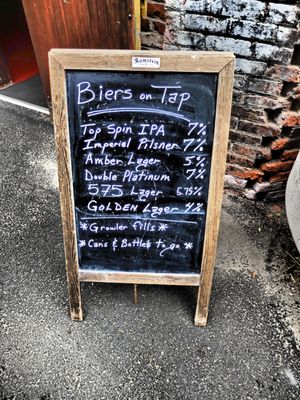 Biers on Tap
Top Spin IPA 7%
Imperial Pilsner 7%
Amber Lager 5%
Double Platinum 7%
575 Lager 5.75%
GOLDEN Lager 4%
*Growler fills*
*Cans & Bottles to go*